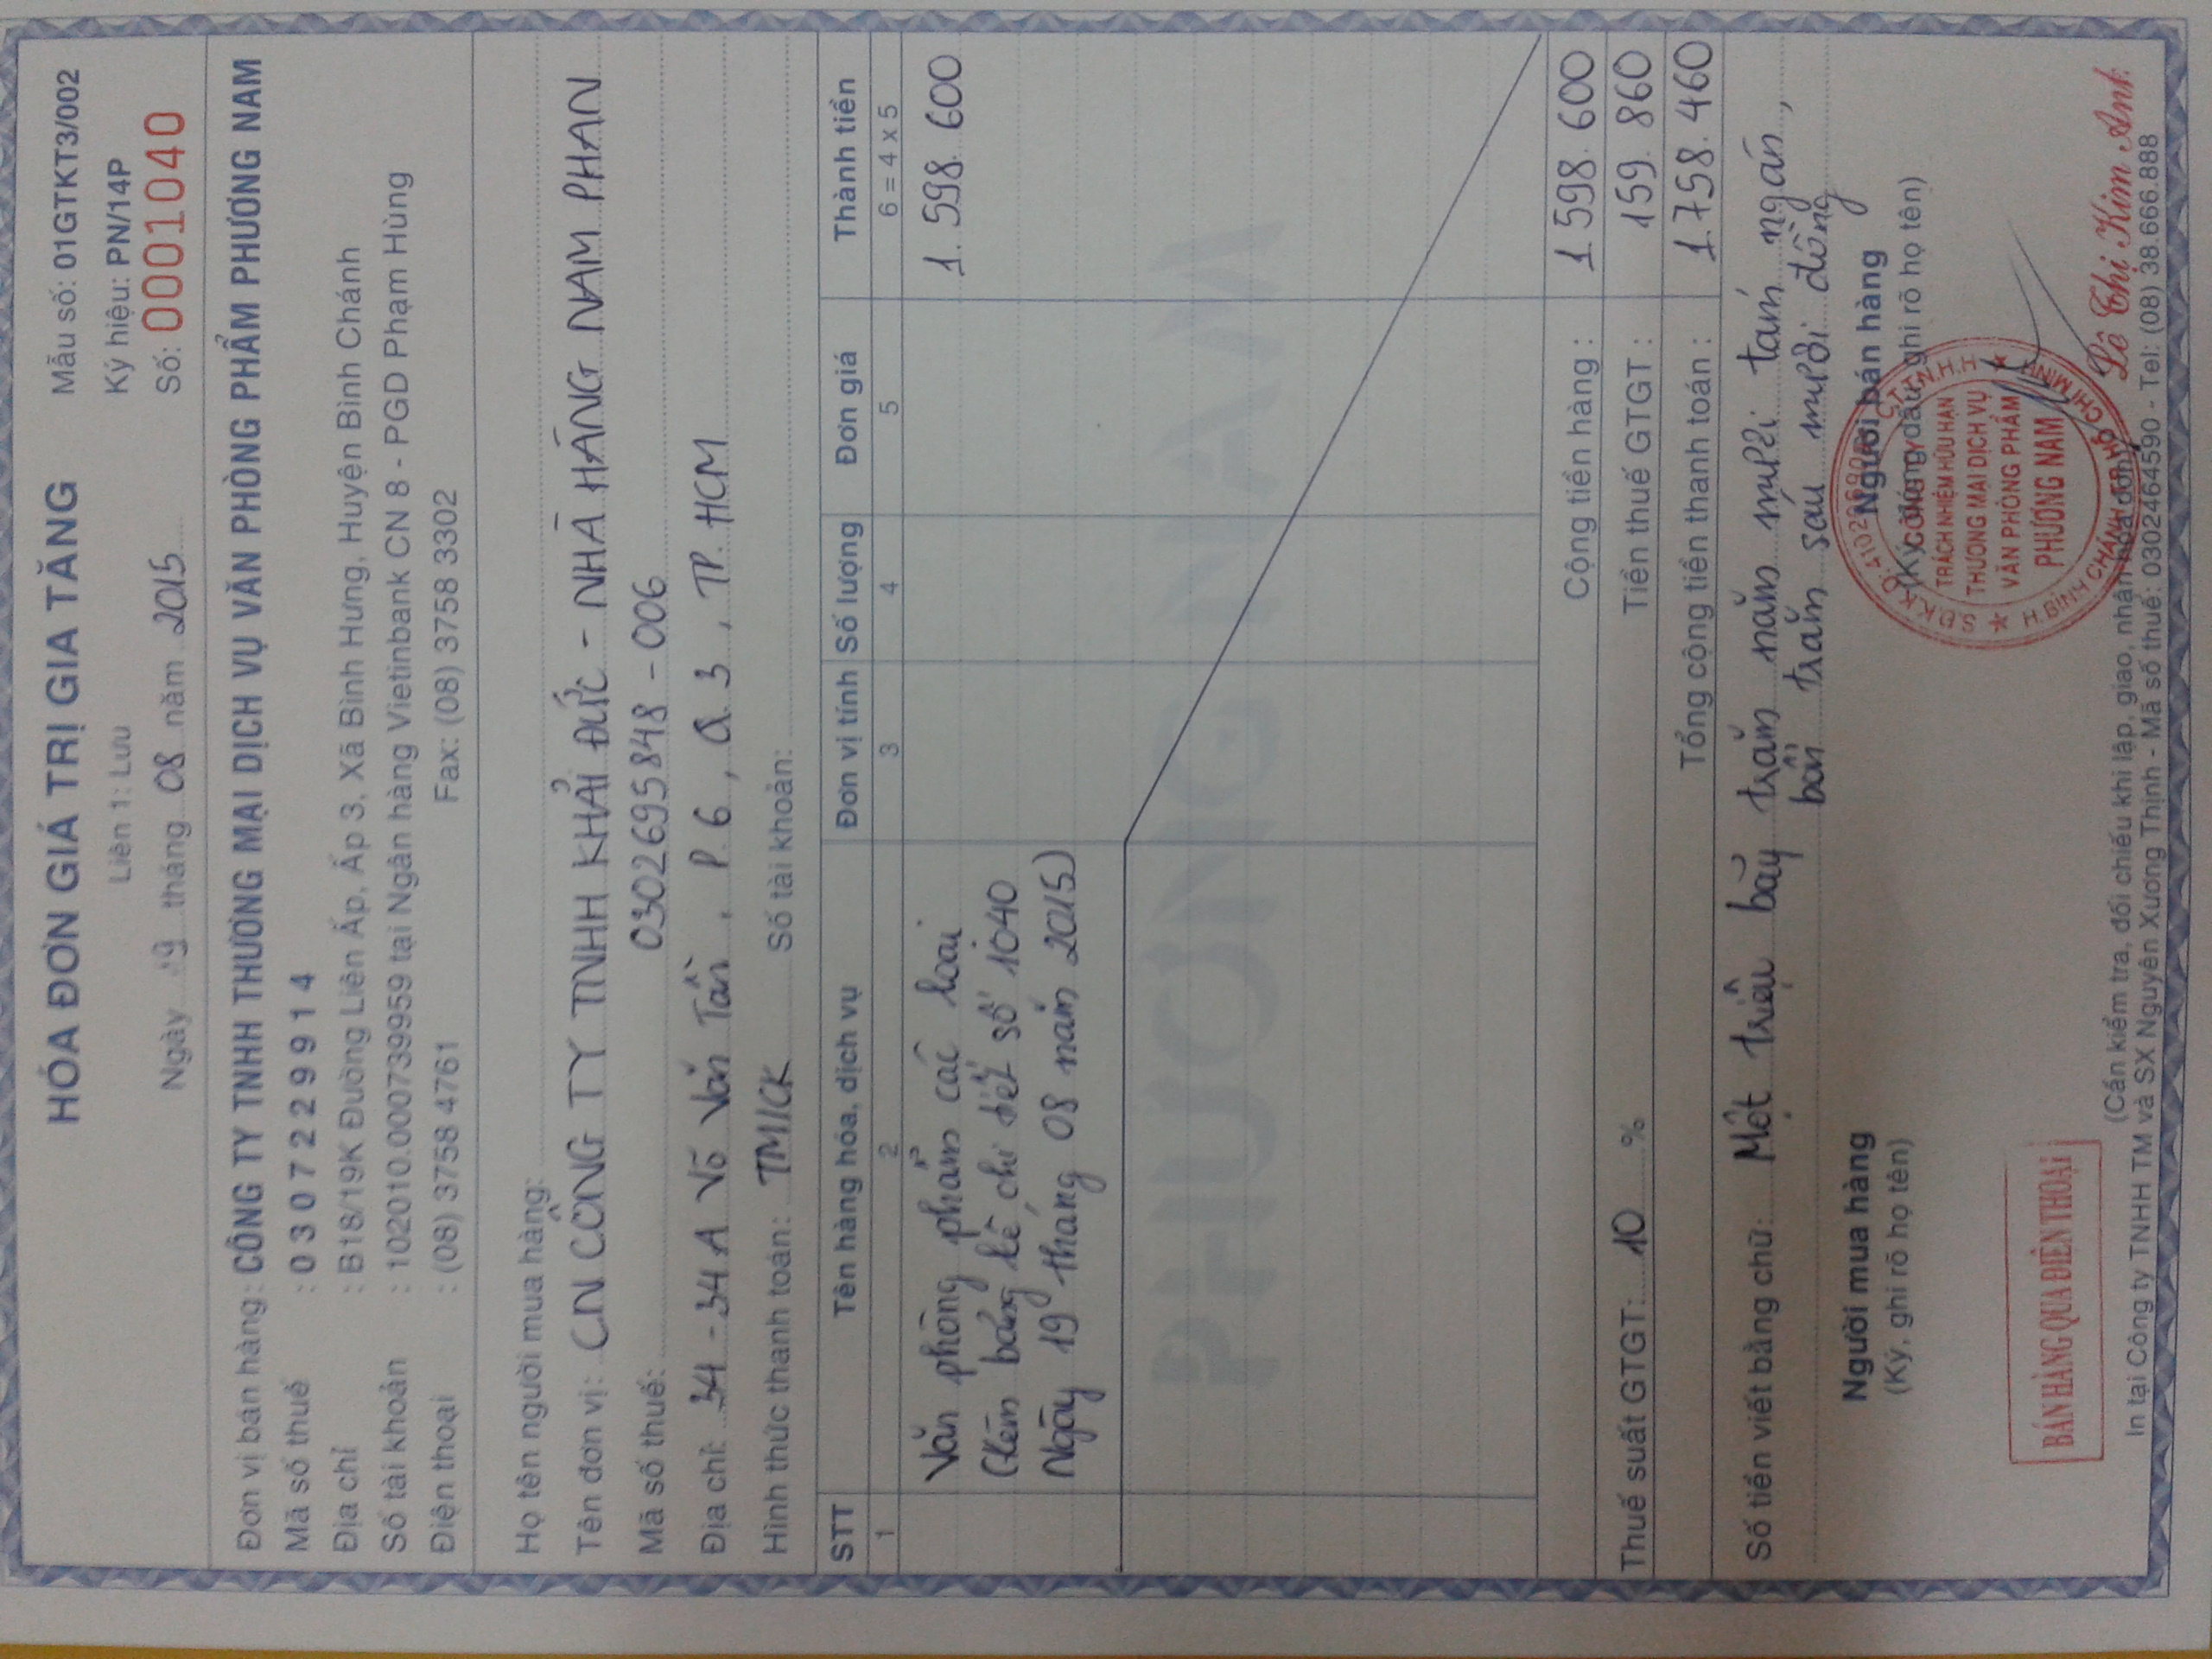 HÓA ĐƠN GIÁ TRỊ GIA TĂNG
Mẫu số: 01GTKT3/002
Liên 1: Lưu
Ký hiệu: PN/14P
Ngày 19 tháng 08 năm 2015
Số: 0001040
Đơn vị bán hàng: CÔNG TY TNHH THƯƠNG MẠI DỊCH VỤ VĂN PHÒNG PHẨM PHƯƠNG NAM
Mã số thuế : 0307229914
Địa chỉ : B18/19K Đường Liên Ấp, Ấp 3, Xã Bình Hưng, Huyện Bình Chánh
Số tài khoản : 102010.000739959 tại Ngân hàng Vietinbank CN 8 - PGD Phạm Hùng
Điện thoại : (08) 3758 4761 Fax: (08) 3758 3302
Họ tên người mua hàng:
Tên đơn vị: CN CÔNG TY TNHH KHẢI ĐỨC - NHÀ HÀNG NAM PHAN
Mã số thuế: 0302695848 - 006
Địa chỉ: 34 - 34A Võ Văn Tần, P. 6, Q. 3, TP. HCM
Hình thức thanh toán: TM/CK Số tài khoản:
STT Tên hàng hóa, dịch vụ Đơn vị tính Số lượng Đơn giá Thành tiền
1 2 3 4 5 6 = 4 x 5
Văn phòng phẩm các loại 1.598.600
(Kèm bảng kê chi tiết số 1040
Ngày 19 tháng 08 năm 2015)
PHƯƠNG NAM
Cộng tiền hàng : 1.598.600
Thuế suất GTGT: 10 % Tiền thuế GTGT : 159.860
Tổng cộng tiền thanh toán : 1.758.460
Số tiền viết bằng chữ: Một triệu bảy trăm năm mươi tám ngàn,
bốn trăm sáu mươi đồng
Người mua hàng Người bán hàng
(Ký, ghi rõ họ tên) (Ký, đóng dấu, ghi rõ họ tên)
CÔNG TY
TRÁCH NHIỆM HỮU HẠN
THƯƠNG MẠI DỊCH VỤ
VĂN PHÒNG PHẨM
PHƯƠNG NAM
H.BÌNH CHÁNH - TP.HỒ CHÍ MINH
BÁN HÀNG QUA ĐIỆN THOẠI
Lê Thị Kim Anh
(Cần kiểm tra, đối chiếu khi lập, giao, nhận hóa đơn)
In tại Công ty TNHH TM và SX Nguyên Xương Thịnh - Mã số thuế: 0302464590 - Tel: (08) 38.666.888